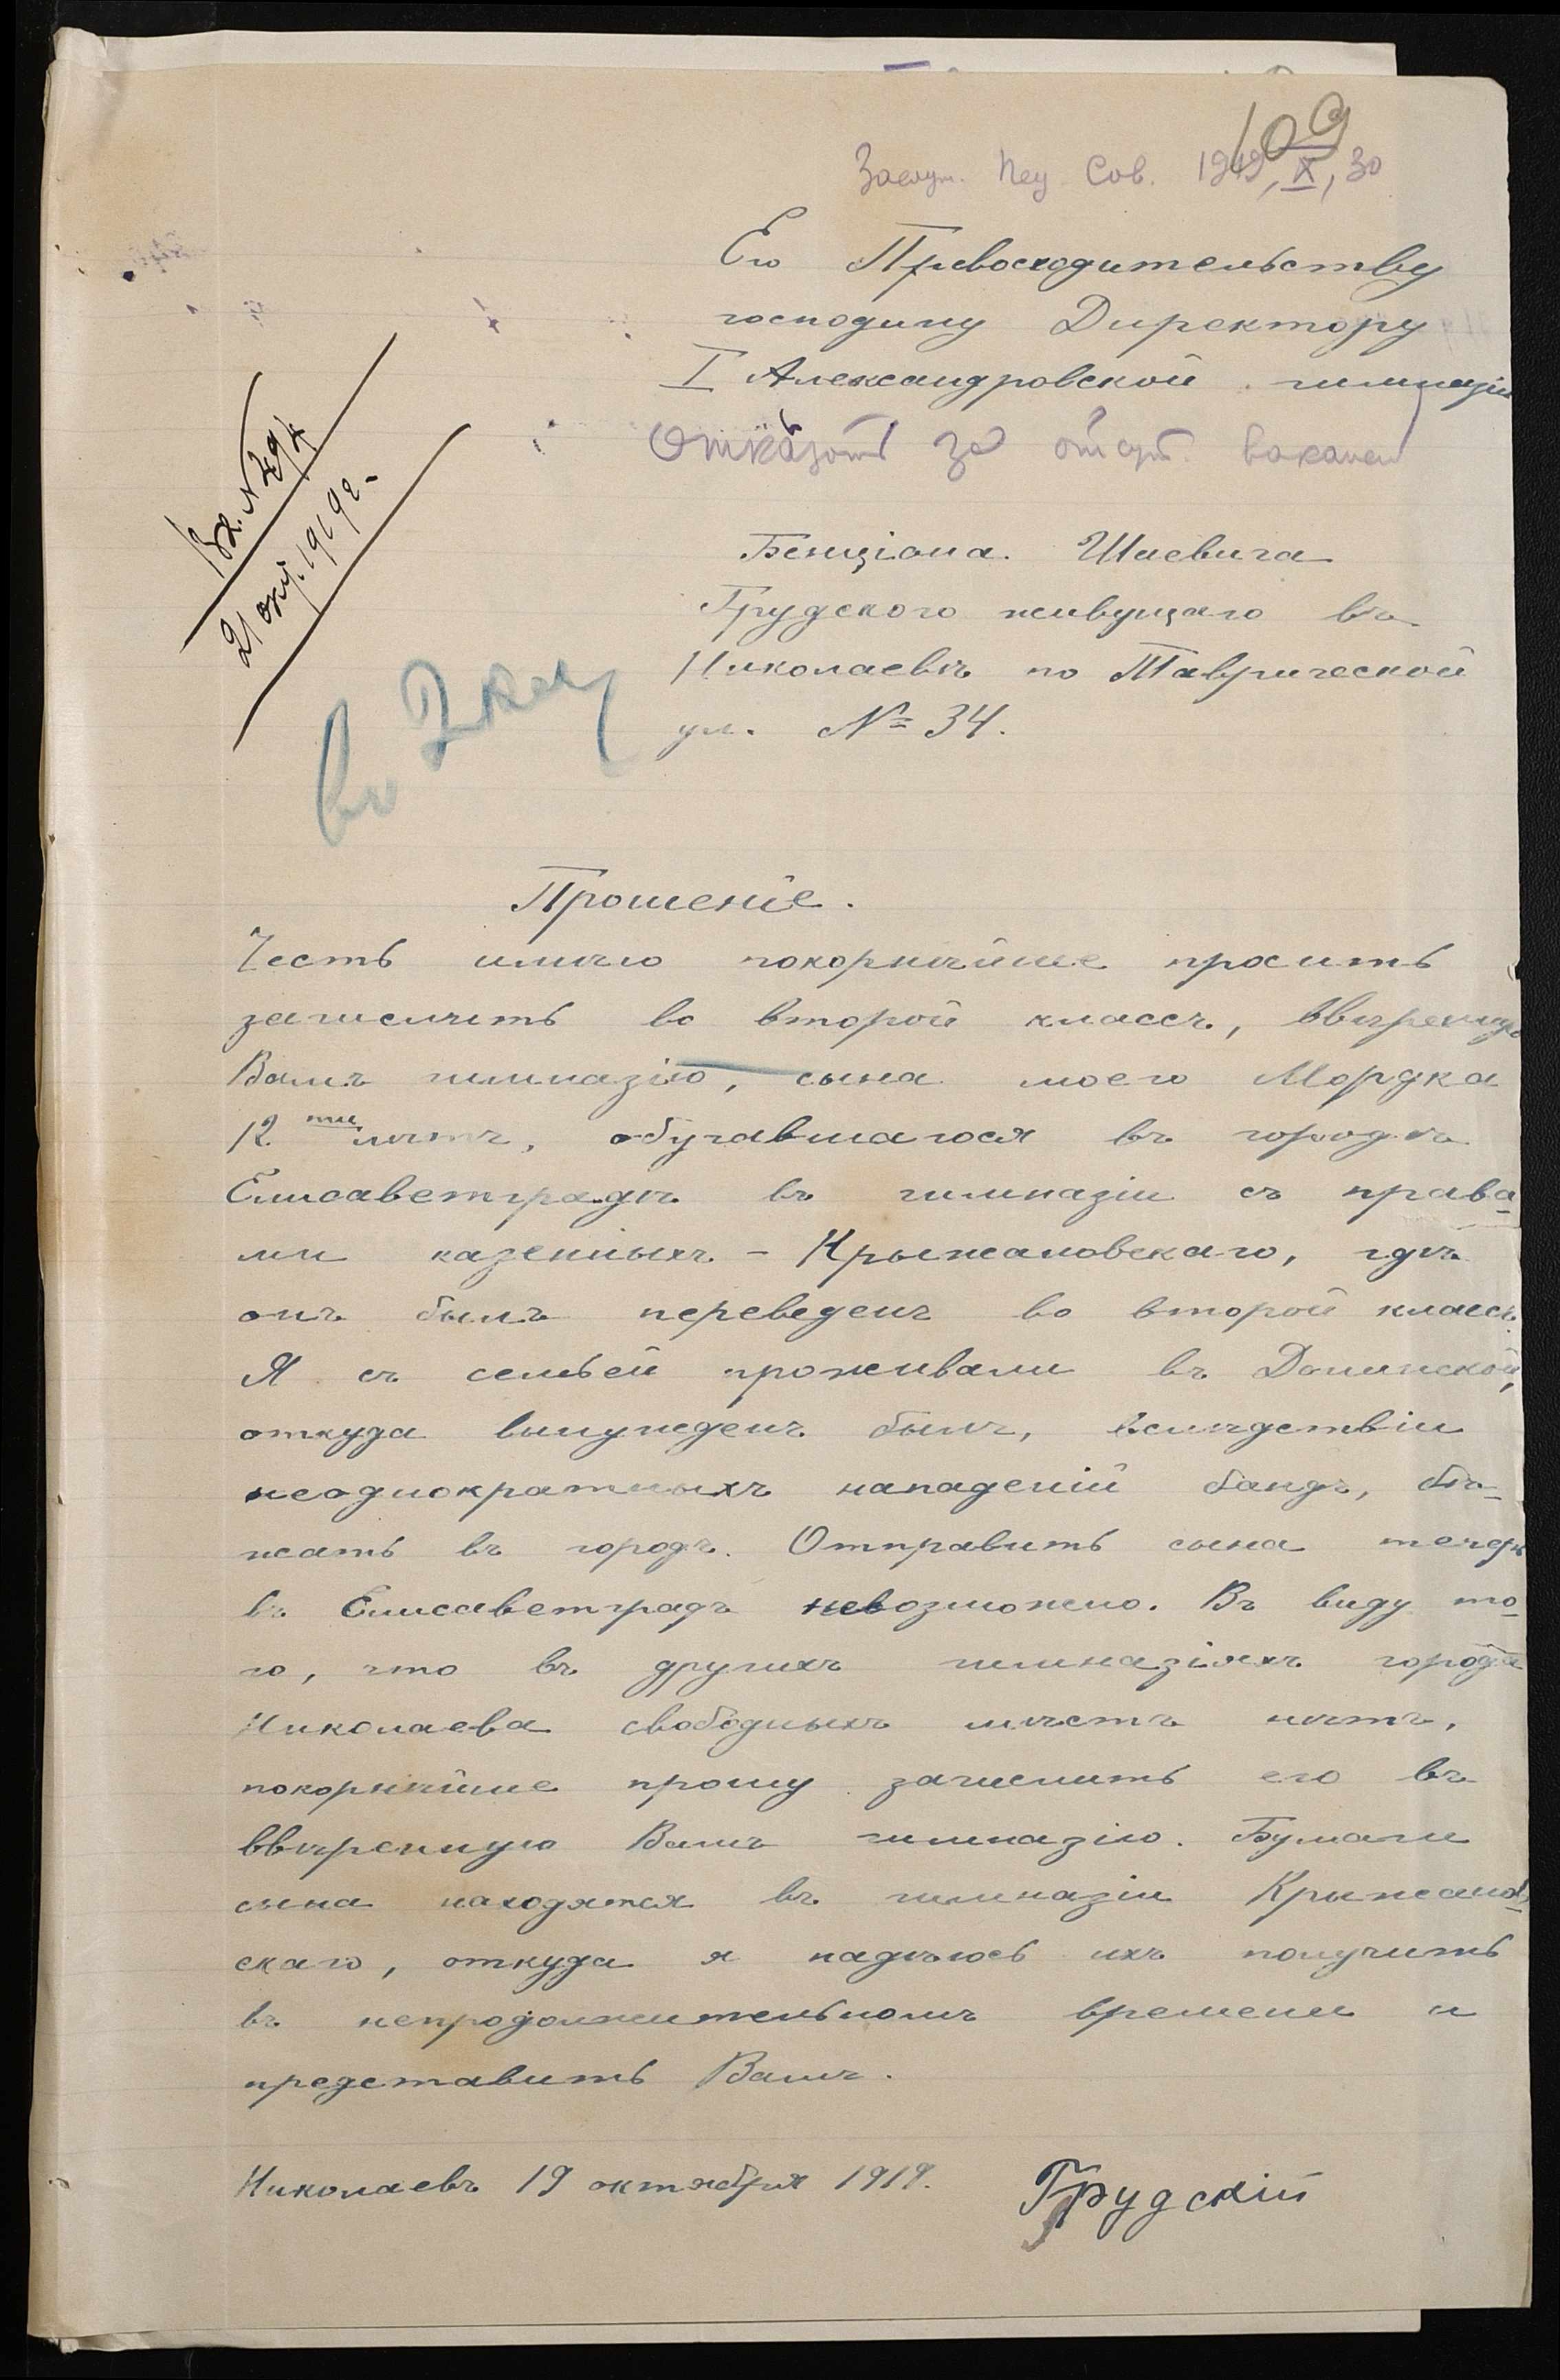 109
Засѣд. Пед. Сов. 1919, X, 30
Его Превосходительству
господину Директору
I Александровской гимназіи
Отказать за отсут. вакансій
Вх. № 294
21 окт. 1919 г.
Бенціона Шаевича
Грудского живущаго въ
Николаевѣ по Таврической
ул. № 34.
во 2 кл.
Прошеніе.
Честь имѣю покорнѣйше просить
зачислить во второй классъ, ввѣренную
Вамъ гимназію, сына моего Мордка
12ти лѣтъ, обучавшагося въ городѣ
Елисаветградѣ въ гимназіи съ права-
ми казенныхъ - Крыжановскаго, гдѣ
онъ былъ переведенъ во второй классъ.
Я съ семьей проживали въ Долинской,
откуда вынужденъ былъ, вслѣдствіи
неоднократныхъ нападеній бандъ, бѣ-
жать въ городъ. Отправить сына теперь
въ Елисаветградъ невозможно. Въ виду то-
го, что въ другихъ гимназіяхъ города
Николаева свободныхъ мѣстъ нѣтъ,
покорнѣйше прошу зачислить его въ
ввѣренную Вамъ гимназію. Бумаги
сына находятся въ гимназіи Крыжанов-
скаго, откуда я надѣюсь ихъ получить
въ непродолжительномъ времени и
представить Вамъ.
Николаевъ 19 октября 1919. Грудскій